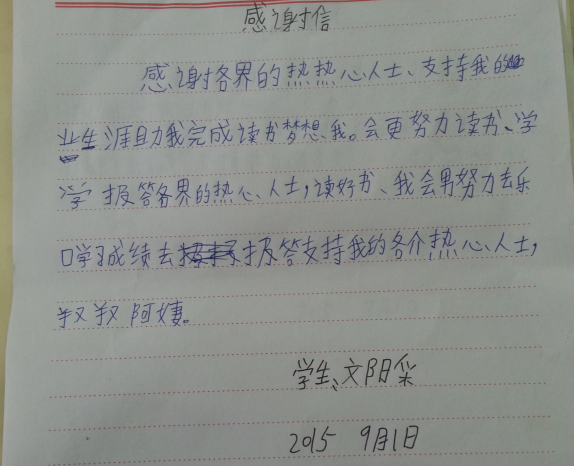 感谢信
感谢各界的热热心人士、支持我的
业生涯自力我完成读书梦想我。会更努力读书、学
学报答各界的热心、人士,读好书、我会男努力去乐
口学习成绩去报答支持我的各介热心、人士,
叔叔阿姨。
学生、文阳采
2015 9月1日